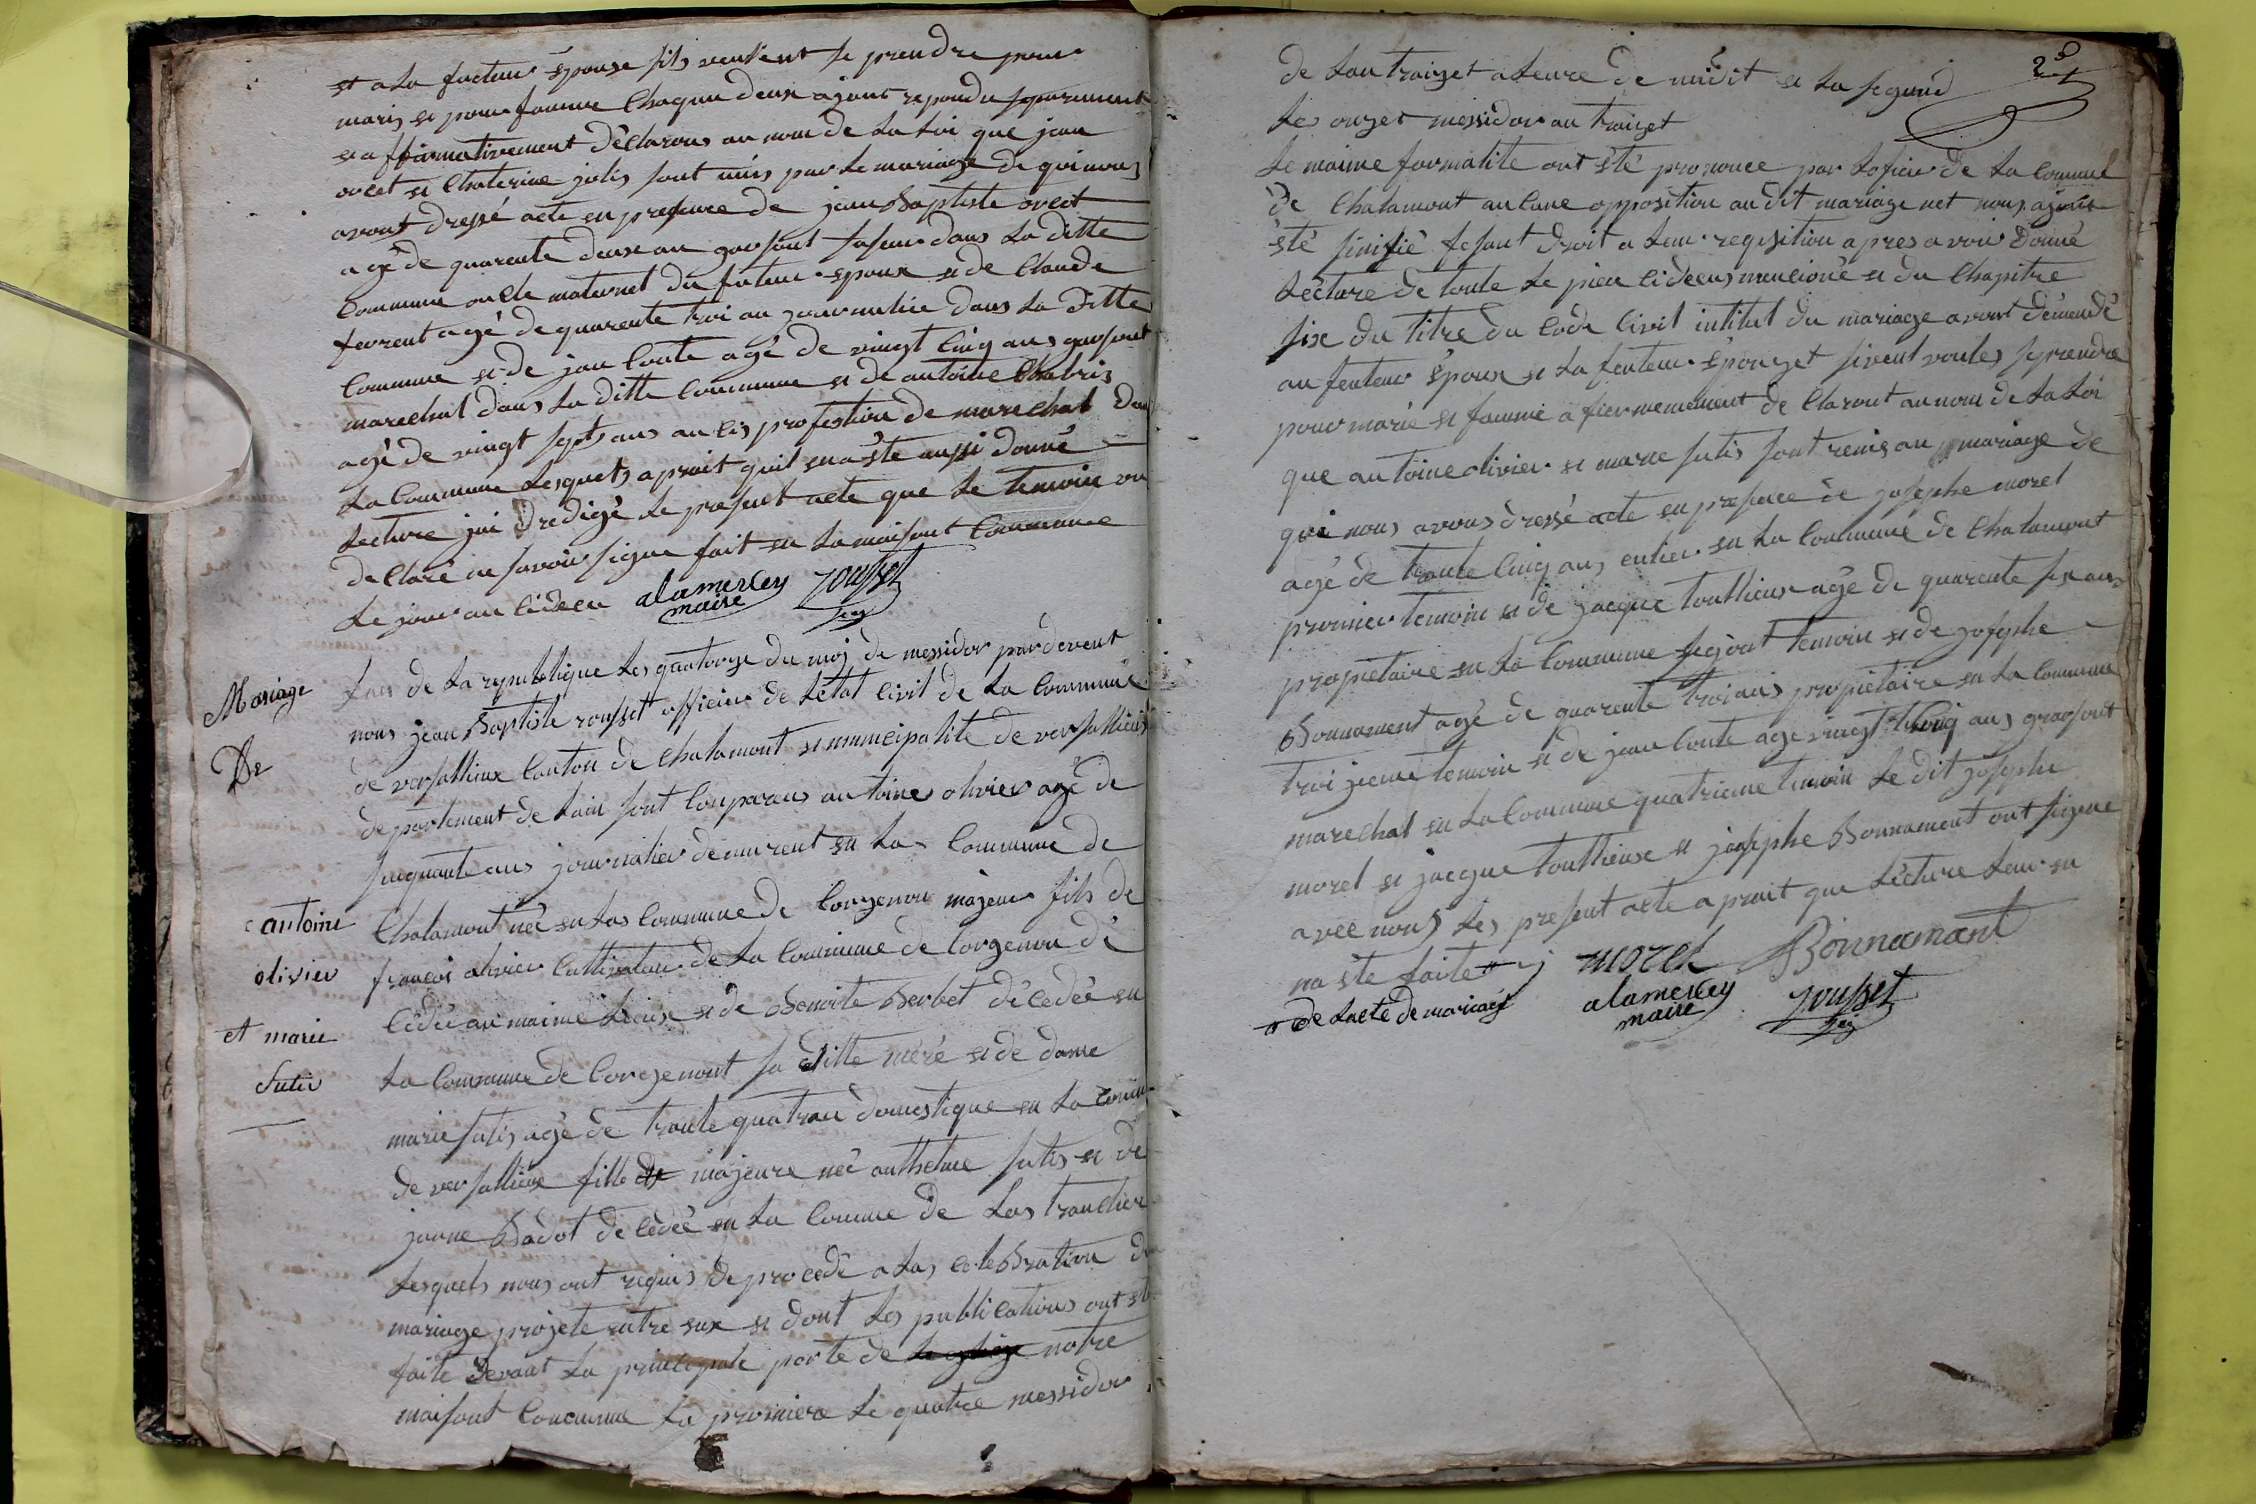 et a la futeur épouse sils veulent se prendre pour
maris et pour famme chaqun deux ajant repondu separement
et affirmativement déclarons au nom de la loi que jean
ovcet et Chaterine jolis sont unis par le mariage de qui nous
avont dressé acte en presence de jean Baptiste ovcet
agé de quarente deux an garsont faseur dans la ditte
Commune oncle maternel du futeur époux et de Claude
ferrent agé de quarente troi an journalier dans la ditte
Commune et de jean Conte agé de vingt cinq ans garsont
marechal dans la ditte Commune et de antoine Chabris
agé de vingt sept ans au cis profestion de marechal dan
la Commune lesquels aprait quil en a été aussi donné
lecture jai redigé le present acte que le temoin on
declaré ne savoir signer fait en la maisont Commune
le jour an cideseu alamercery rousset
maire
Mariage
De
antoine
olivier
et marie
Sutis
lan de la republique les quatorze du mois de messidor pardevent
nous jean Baptiste rousset officier de létat civil de la Commune
de versallieux Canton de Chalamont et municipalité de versallieux
departement de lain sont Comparus antoine olivier agé de
sinquante ans journalier demeurent en la Commune de
Chalamont née en las Commune de Corgenon majeur fils de
françoi olivier Cultivateur de la Commune de Corgenon dé
cédée au maime lieux et de Benoite Berbet décedée en
la Commune de Corgenont sa ditte mere et de dame
marie sutis agé de trante quatran domestique en la comun
de versallieux fille de majeure née anthelme sutis et de
janne Badot decédée en la Commue de Las tranclier
lesquels nous ont requis de procedé a las celebration du
mariage projeté entre eux et dont les publications ont été
faite devant la principale porte de la eglize notre
maisont Commune la premiere le quatre messidor
28
de lan traizet a leure de midit et la segond
les onzet messidor an traizet
le maime formalité ont été prononce par lofficier de la Commune
de Chalamont aucune opposition au dit mariage net nous ajant
été sinifié fesant droit a leur requisition apres avoir donné
lecture de toute le piece cideseus mencioné et du Chapitre
six du titre du Code Civil intitul du mariage avont demendé
au feuteur époux et la feuteur épouzet siveul voules seprendre
pour marié et famme afiermemement declaront au nom de la loi
que antoine olivier et marie sutis sont renis au mariage de
qui nous avons dressé acte en presence de josephe morel
agé de trante cinq ans entier en la Commune de Chalamont
premier temoin et de jacque toullieux agé de quarente six ans
propriétaire en la Commune segont temoin et de josephe
Bonnament agé de quarente troi ans propietaire en la commune
troizieme temoin et de jean Conte age vingt cinq ans grarsont
marechal en la Commune quatrieme temoin le dit josephe
morel et jacque toullieux et josephe Bonnament ont signe
avec nous les present acte aprait que lécture leur en
na éte faite morel Bonnamant
de lacte de mariage alamercery rousset
maire